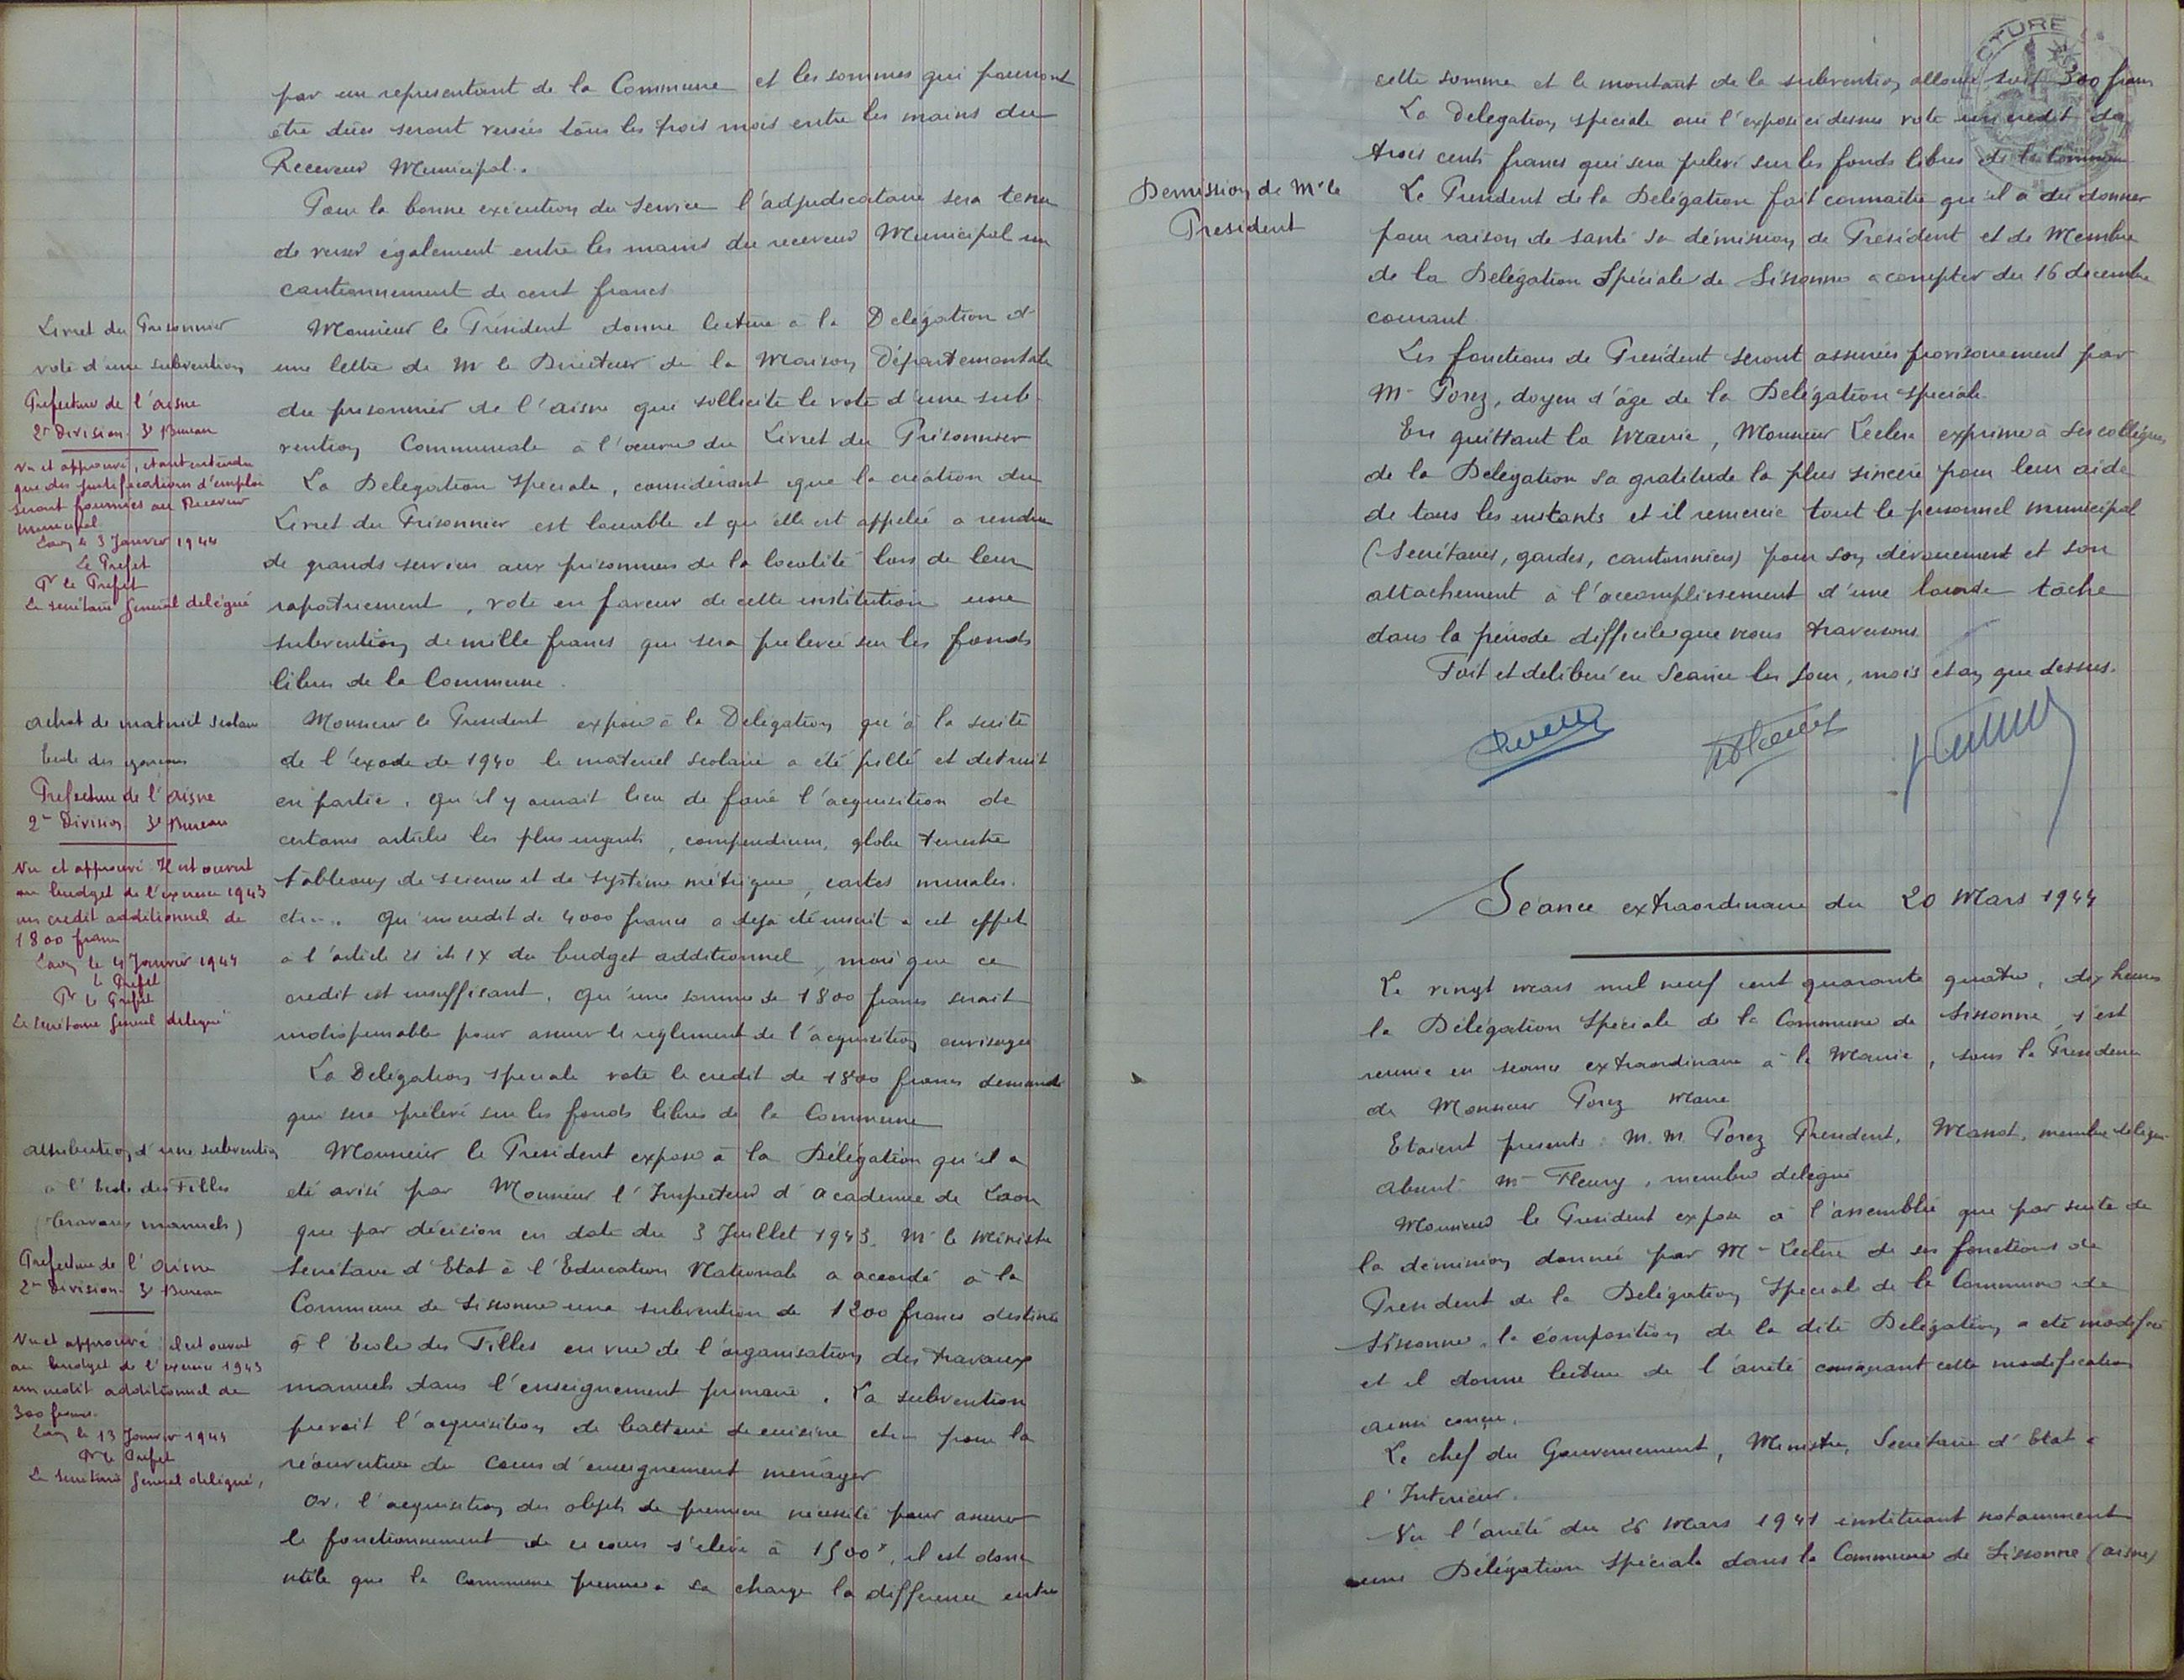 par un representant de la Commune et les sommes qui pourront
être dues seront versées tous les trois mois entre les mains du
Receveur Municipal.
Pour la bonne execution du Service l'adjudicataire sera tenu
de verser également entre les mains du receveur Municipal un
cautionnement de cent francs
Livret du Prisonnier
vote d'une subvention
Prefecture de l'aisne
2e Division 3e Bureau
Vu et approuvé, etant entendu
que des justifications d'emploi
seront fournies au Receveur
municipal
Laon le 3 Janvier 1944
Le Prefet
Pr le Prefet
Le secrétaire General délégué
Monsieur le Président donne lecture à la Delégation d'
une lettre de Mr le Directeur de la Maison Départementale
du prisonnier de l'aisne qui sollicite le vote d'une sub-
vention Communale à l'oeuvre du Livret du Prisonnier
La Delegation Speciale, considérant que la création du
Livret du Prisonnier est louable et qu'elle est appelée a rendre
de grands services aux prisonniers de la localité lors de leur
rapatriement, vote en faveur de cette institution une
subvention de mille francs qui sera prelevée sur les fonds
libres de la Commune.
achat de materiel scolaire
Ecole des garçons
Prefecture de l'Aisne
2e Division 3e Bureau
Vu et approuvé Il est ouvert
au budget de l'exercice 1943
un credit additionnel de
1800 francs
Laon le 4 Janvier 1944
Le Prefet
Pr le Prefet
Le Secrétaire General delegué
Monsieur le President expose à la Delegation qu'à la suite
de l'exode de 1940 le materiel scolaire a été pillé et detruit
en partie, qu'il y aurait lieu de faire l'acquisition de
certains articles les plus urgents, compendium, globe terrestre
tableaux de sciences et de système métrique, cartes murales.
etc... Qu'un credit de 4000 francs a deja été inscrit a cet effet
a l'article 21 ch IX du budget additionnel, mais que ce
credit est insuffisant. Qu'une somme de 1800 francs serait
indispensable pour assurer le reglement de l'acquisition envisagée
La Delégation speciale vote le credit de 1800 francs demandé
qui sera prélevé sur les fonds libres de la Commune
attribution d'une subvention
à l'Ecole des Filles
(travaux manuels)
Prefecture de l'Aisne
2e Division 3e Bureau
Vu et approuvé : il est ouvert
au budget de l'exercice 1943
un credit additionnel de
300 francs.
Laon le 13 Janvier 1944
Pr le Prefet
Le Secrétaire General délégué,
Monsieur le President expose à la Délégation qu'il a
eté avisé par Monsieur l'Inspecteur d'academie de Laon
que par décision en date du 3 Juillet 1943. Mr le Ministre
Secrétaire d'Etat à l'Education Nationale a accordé à la
Commune de Sissonne une subvention de 1200 francs destinée
à l'Ecole des Filles en vue de l'organisation des travaux
manuels dans l'enseignement primaire. La subvention
prevoit l'acquisition de batterie de cuisine etc.. pour la
réouverture du Cours d'enseignement ménager
Or, l'acquisition des objets de premiere necessité pour assurer
le fonctionnement de ce cours s'élève à 1500f, il est donc
utile que la Commune prenne a sa charge la difference entre
cette somme et le montant de la subvention allouée soit 300 francs
La Delegation speciale ouï l'exposé ci dessus vote un credit de
trois cents francs qui sera prelevé sur les fonds libres de la Commune
Demission de Mr le
President
Le President de la Delégation fait connaitre qu'il a dû donner
pour raison de santé sa démission de Président et de Membre
de la Delégation Spéciale de Sissonne a compter du 16 decembre
courant
Les fonctions de President seront assurées provisoirement par
Mr Porez, doyen d'âge de la Delégation speciale.
En quittant la Mairie, Monsieur Leclere exprime à ses collègues
de la Delegation sa gratitude la plus sincère pour leur aide
de tous les instants et il remercie tout le personnel municipal
(Secrétaires, gardes, cantonniers) pour son devouement et son
attachement à l'accomplissement d'une lourde tâche
dans la période difficile que nous traversons.
Fait et deliberé en Seance les jour, mois et an que dessus.
Seance extraordinaire du 20 Mars 1944
Le vingt mars mil neuf cent quarante quatre, dix heures
la Délégation Spéciale de la Commune de Sissonne, s'est
reunie en seance extraordinaire à la Mairie, sous la Presidence
de Monsieur Porez Maire
Etaient presents : M.M. Porez President, Manot, membre délégué
Absent : Mr Fleury, membre delegué
Monsieur le President expose à l'assemblée que par suite de
la demission donnée par Mr Leclere de ses fonctions de
President de la Delégation Speciale de la Commune de
Sissonne, la composition de la dite Delegation a eté modifiée
et il donne lecture de l'arrêté consacrant cette modification
ainsi conçu.
Le chef du Gouvernement, Ministre, Secrétaire d'Etat à
l'Interieur.
Vu l'arrêté du 26 Mars 1941 instituant notamment
une Délégation Spéciale dans la Commune de Sissonne (aisne)